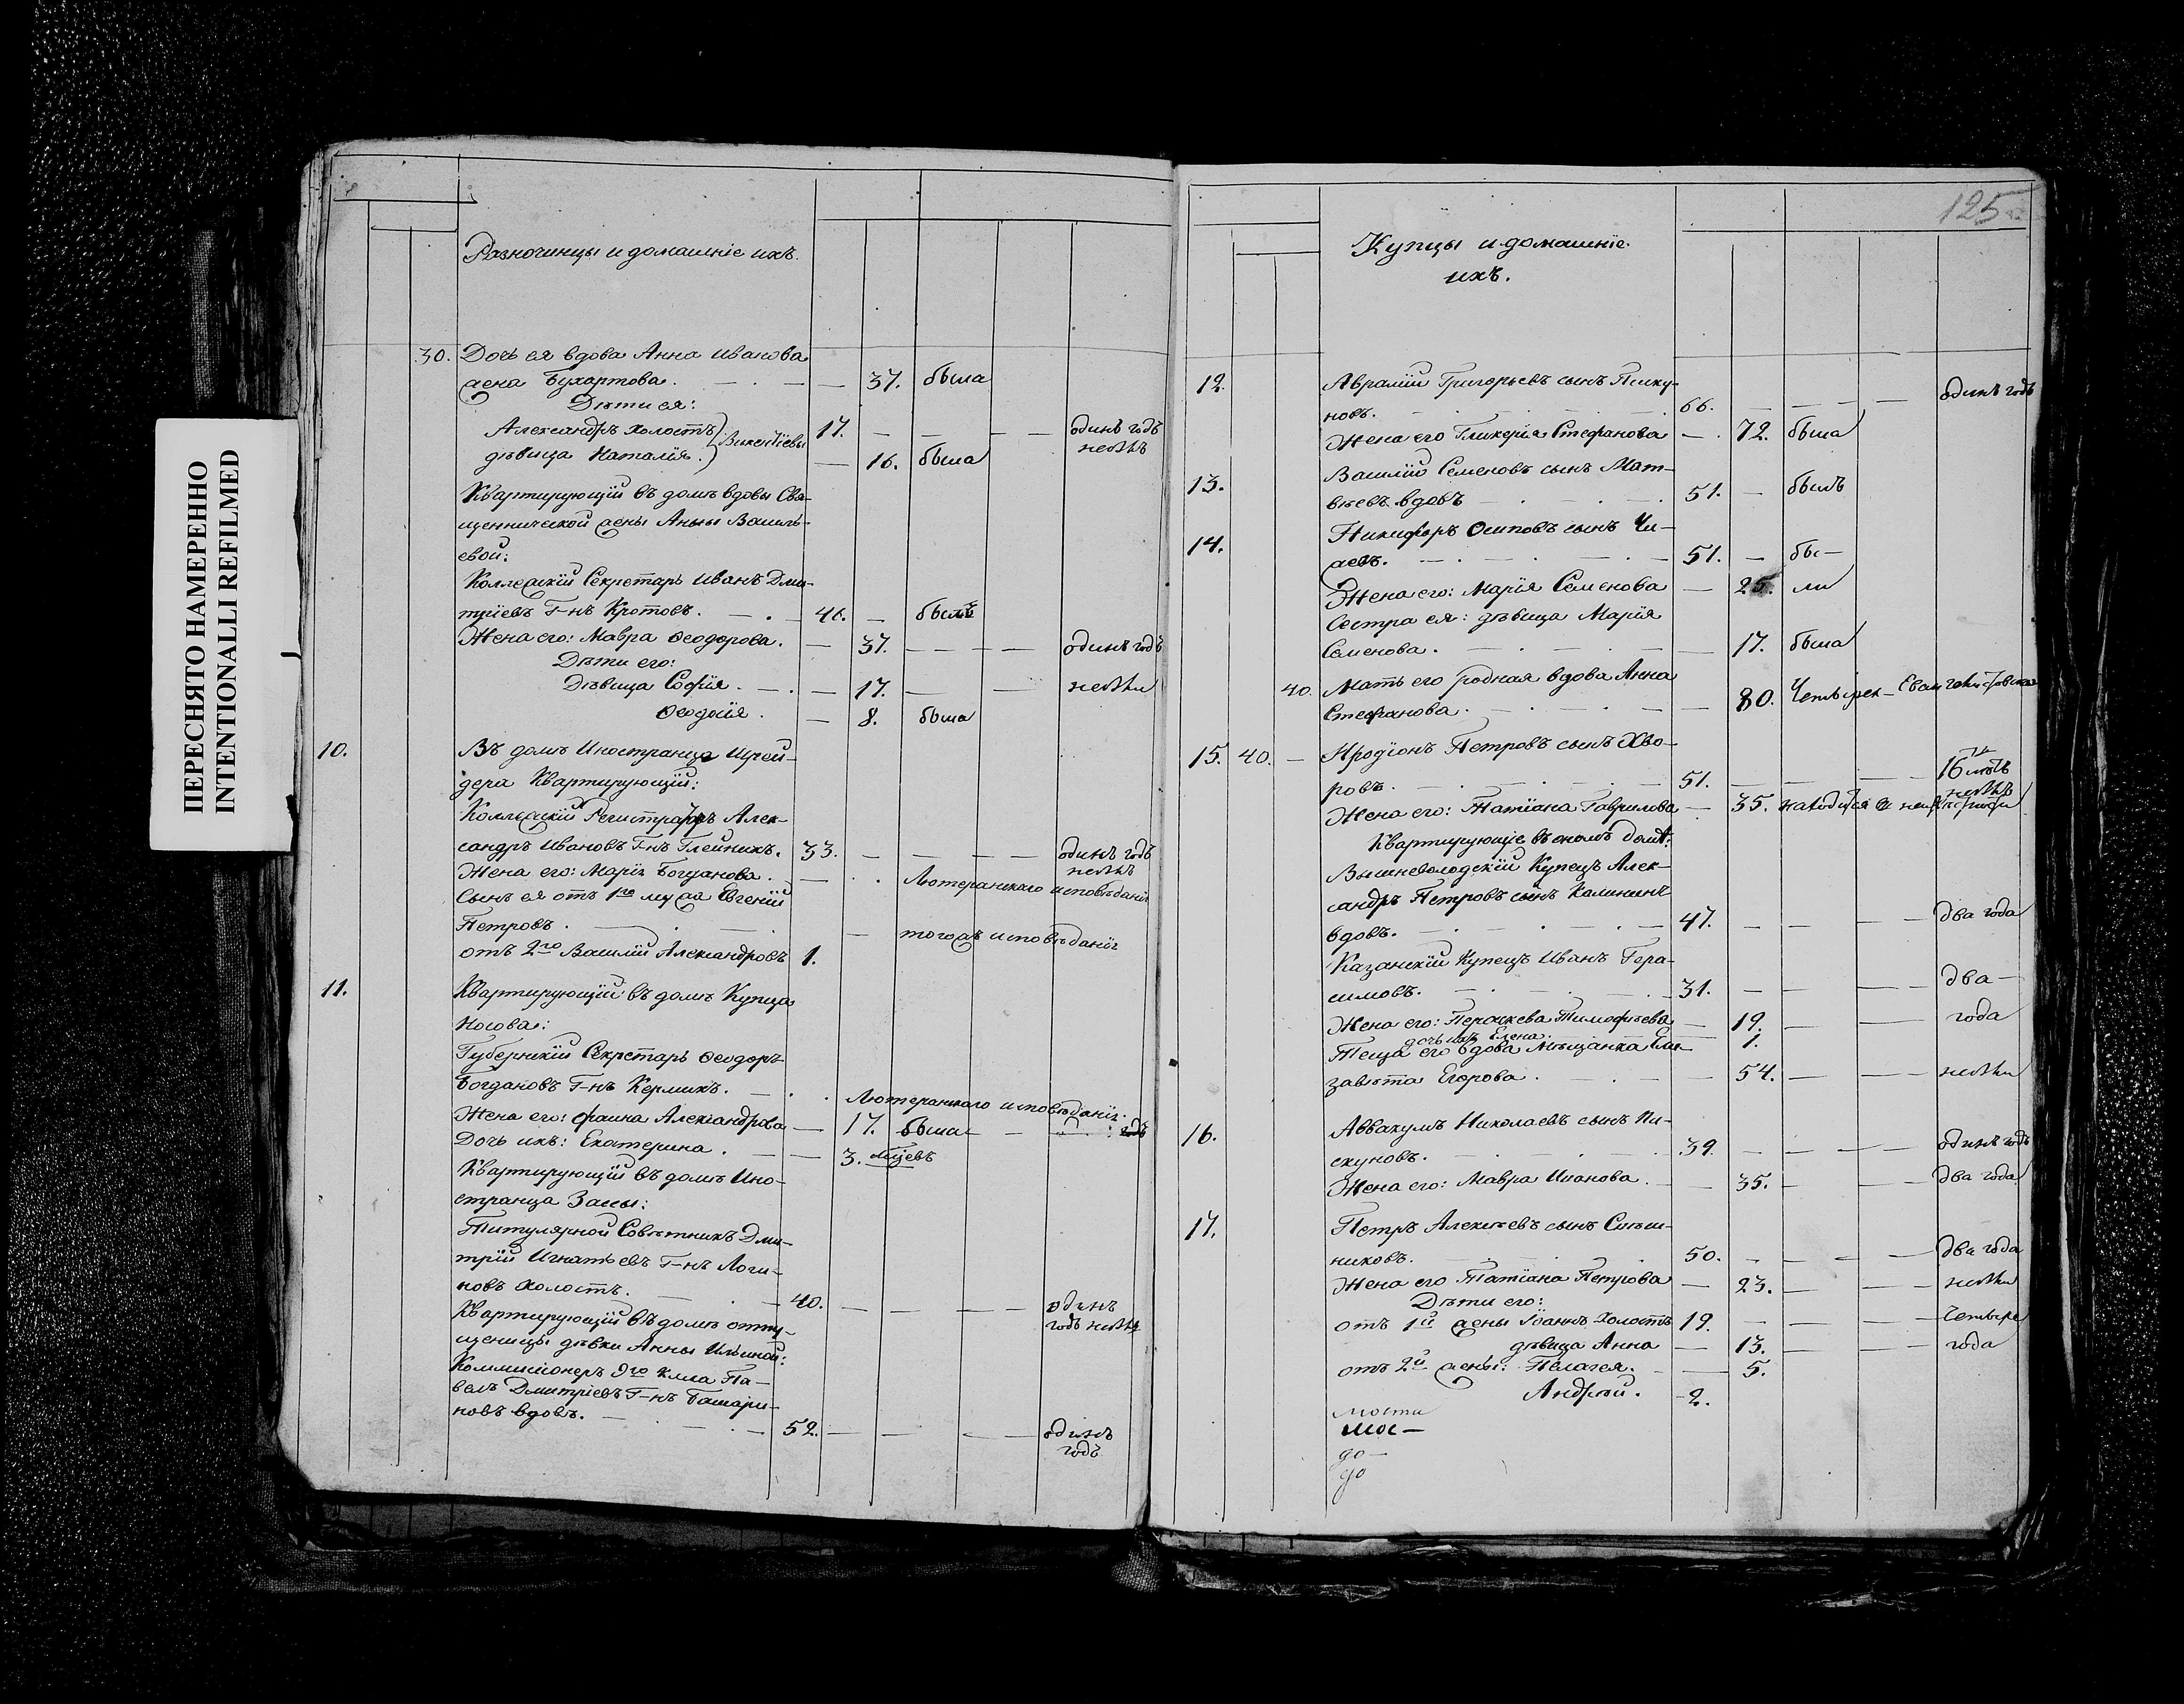 ПЕРЕСНЯТО НАМЕРЕННО
INTENTIONALLI REFILMED
Разночинцы и домашніе ихъ.
30. Дочь ея вдова Анна Иванова
жена Бухартова. — 37. была
Дѣти ея:
Александръ холостъ 17. — — — — одинъ годъ
Викентіевы
дѣвица Наталія. — 16. была
небылъ
Квартирующій въ домѣ вдовы Свя-
щеннической жены Анны Василь-
евой:
Коллежскій Секретарь Иванъ Дми-
тріевъ Г-нъ Кротовъ. — 46. — былъ
Жена его: Мавра Ѳеодорова. — 37. — — — — одинъ годъ
Дѣти его:
Дѣвица Софія. — 17. — — небыли
Ѳеодосія. — 8. была
10. Въ домѣ Иностранца Шрей-
дера Квартирующій:
Коллежскій Регистраторъ Алек-
сандръ Ивановъ Г-нъ Глейникъ. 33. — — — — одинъ годъ
небылъ
Жена его: Марія Богданова. — Лютеранскаго исповѣданія
Сынъ ея отъ 1го мужа Евгеній
Петровъ. — тогожъ исповѣданія
отъ 2го Василій Александровъ 1.
11. Квартирующій въ домѣ Купца
Носова:
Губернскій Секретарь Ѳеодоръ
Богдановъ Г-нъ Кермикъ. — Лютеранскаго исповѣданія.
Жена его: Фаина Александрова — 17. была — — годъ
Дочь ихъ: Екатерина. — — 3. мцевъ
Квартирующій въ домѣ Ино-
странца Заны:
Титулярной Совѣтникъ Дми-
трій Игнатьевъ Г-нъ Логи-
новъ холостъ. — 40. — — — — одинъ
годъ небылъ
Квартирующій въ домѣ отпу-
щеницы дѣвки Анны Ильиной:
Коммисіонеръ 9го класа Па-
велъ Дмитріевъ Г-нъ Башари-
новъ вдовъ. — 52. — — — — одинъ
годъ
125
Купцы и домашніе
ихъ.
12. Аврамій Григорьевъ сынъ Пску-
новъ. 66. — — — — одинъ годъ
Жена его Гликерія Стефанова — 72. была
13. Василій Семеновъ сынъ Мат-
вѣевъ вдовъ — 51. — былъ
14. Никифоръ Осиповъ сынъ Чи-
жевъ. — 51. — бы-
Жена его: Марія Семенова — 25. ли
Сестра ея: дѣвица Марія
Семенова. — 17. была
40. Мать его родная вдова Анна
Стефанова. — 80. Четырех- Евангелистовска
15. 40. — Иродіонъ Петровъ сынъ Хво-
ровъ. 51. — — — 16ть лѣтъ
небылъ
Жена его: Татіана Гаврилова — 35. находится въ
Квартирующіе въ ономъ домѣ:
Вышневолодскій Купецъ Алек-
сандръ Петровъ сынъ Калининъ
вдовъ. — 47. — — — — два года
Казанскій Купецъ Иванъ Гера-
симовъ. — 31. — — — — два —
Жена его: Пераскева Тимофѣева — 19. — — года
дочь ихъ Елена. 1.
Теща его вдова мѣщанка Ели-
завѣта Егорова. — 54. — — — небыли
16. Аввакумъ Николаевъ сынъ Пи-
скуновъ. 39. — — — — одинъ годъ
Жена его: Мавра Иванова. — 35. — — — два года
17. Петръ Алексѣевъ сынъ Ситни-
никовъ. 50. — — — — два года
Жена его Татіана Петрова — 23. — — — небыли
Дѣти его:
отъ 1й жены Іоаннъ холостъ 19. — — — четыре
дѣвица Анна — 13. — — — года
отъ 2й жены: Пелагея. — 5.
Андрей. — 2.
мости
мос —
до —
до